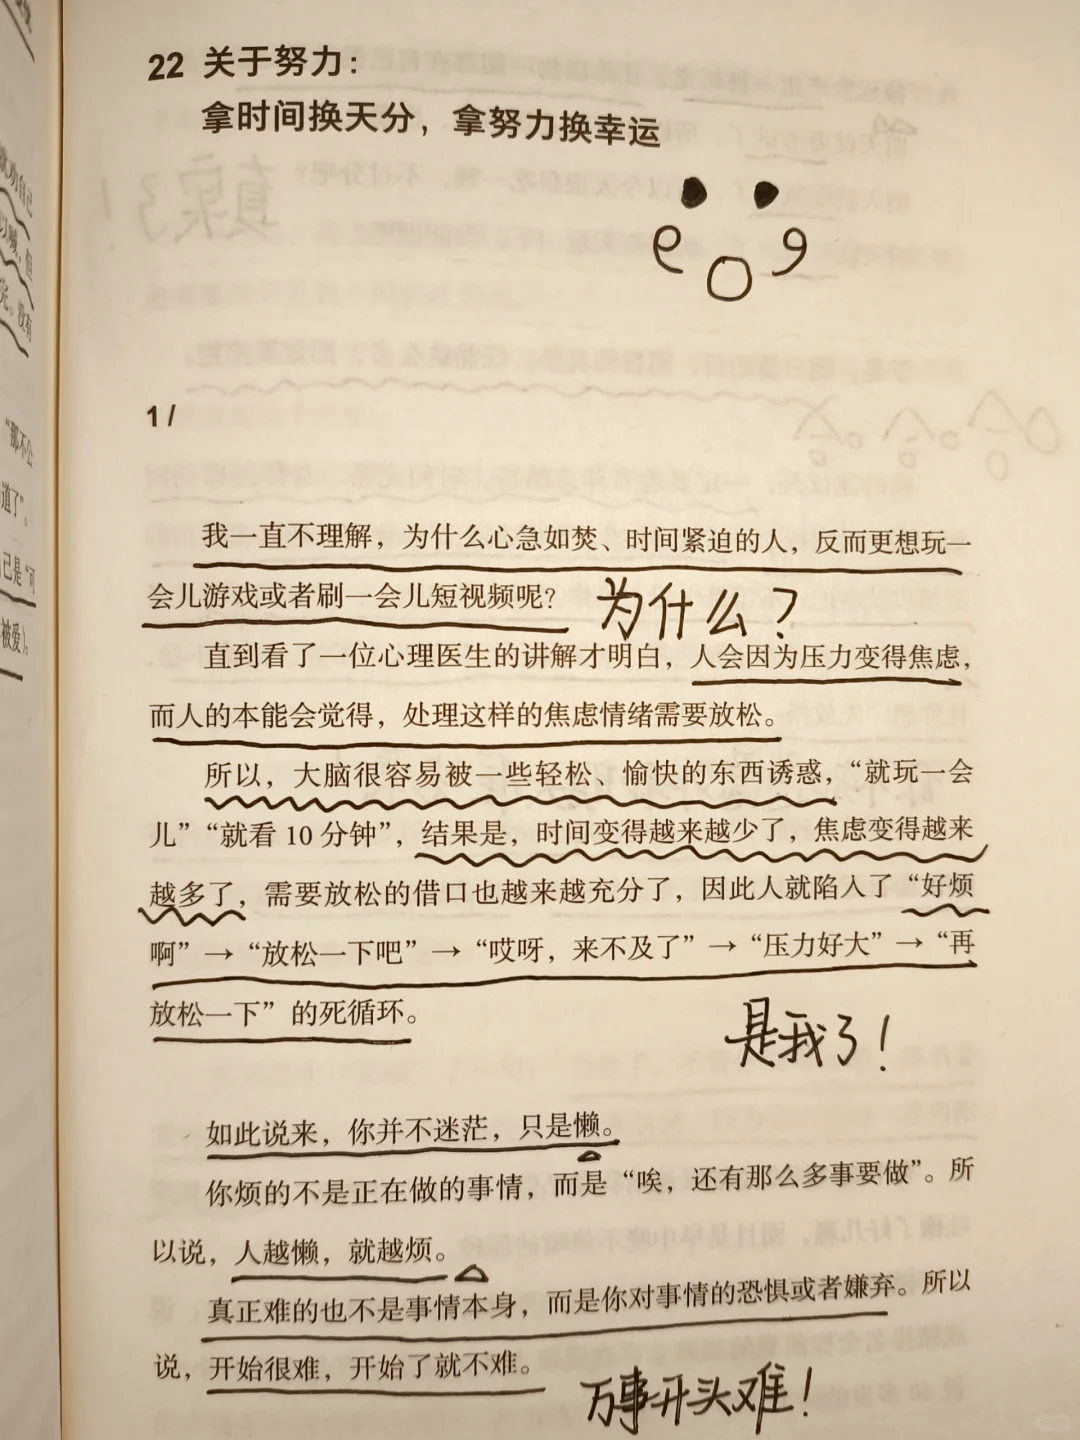 22 关于努力：
拿时间换天分，拿努力换幸运
1 /
我一直不理解，为什么心急如焚、时间紧迫的人，反而更想玩一
会儿游戏或者刷一会儿短视频呢？ 为什么？
直到看了一位心理医生的讲解才明白，人会因为压力变得焦虑，
而人的本能会觉得，处理这样的焦虑情绪需要放松。
所以，大脑很容易被一些轻松、愉快的东西诱惑，“就玩一会
儿”“就看 10 分钟”，结果是，时间变得越来越少了，焦虑变得越来
越多了，需要放松的借口也越来越充分了，因此人就陷入了“好烦
啊”→“放松一下吧”→“哎呀，来不及了”→“压力好大”→“再
放松一下”的死循环。
是我了！
如此说来，你并不迷茫，只是懒。
你烦的不是正在做的事情，而是“唉，还有那么多事要做”。所
以说，人越懒，就越烦。
真正难的也不是事情本身，而是你对事情的恐惧或者嫌弃。所以
说，开始很难，开始了就不难。
万事开头难！